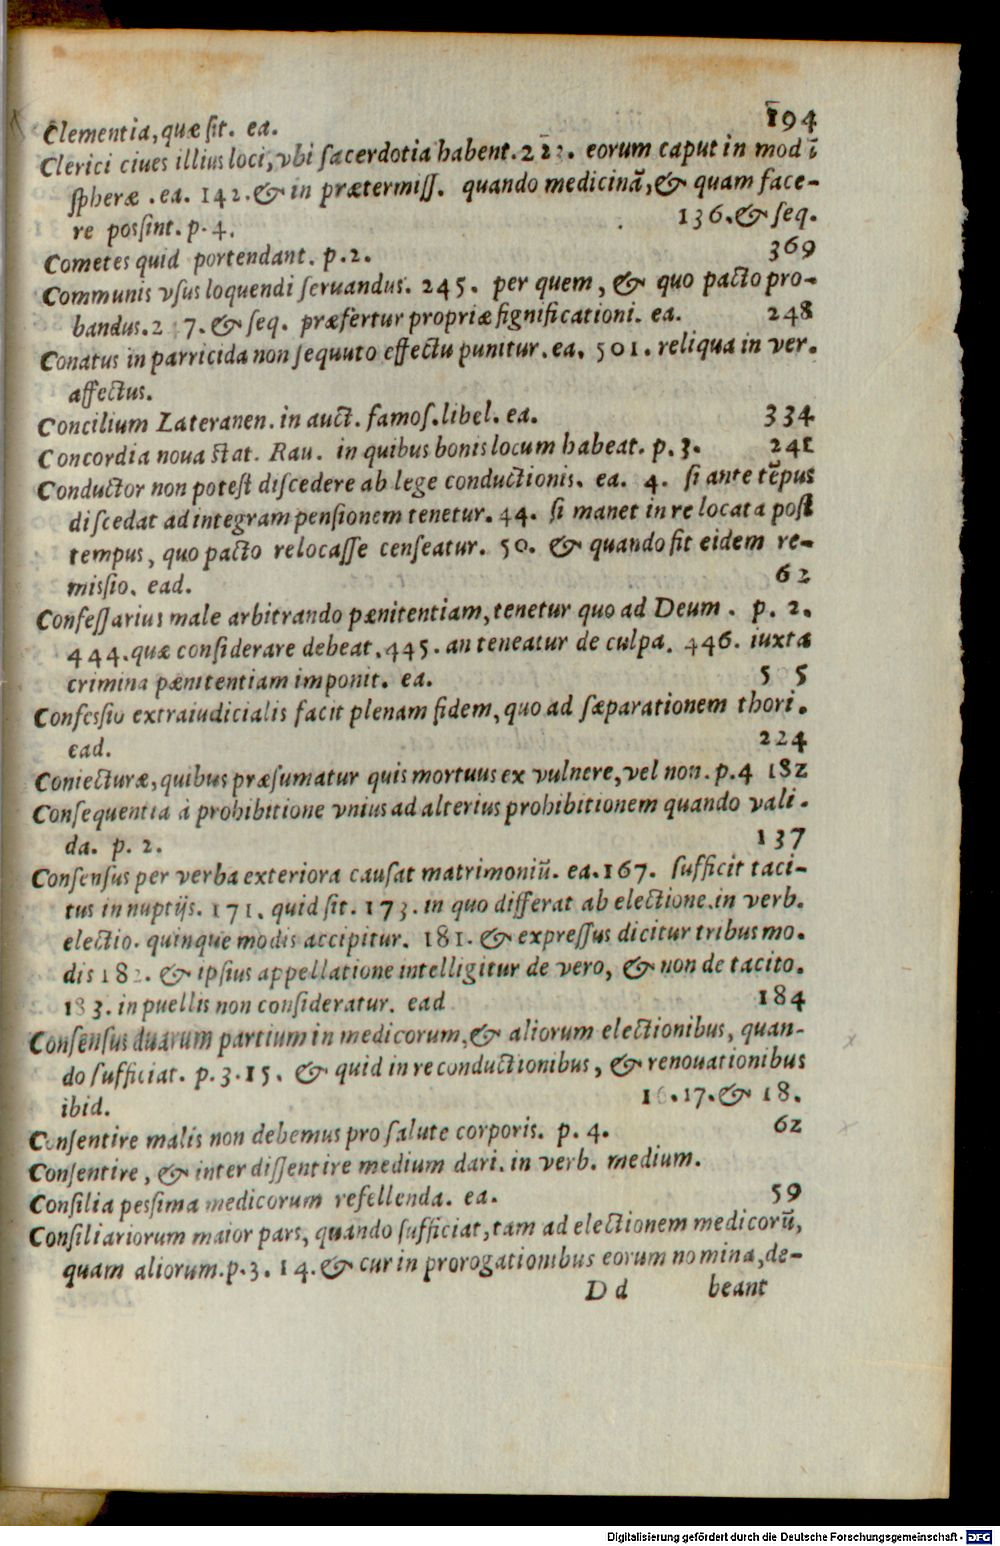 Clementia, quæ sit. ea. 194
Clerici ciues illius loci, vbi sacerdotia habent. 223. eorum caput in mod ĩ
sphæræ . ea. 142. & in prætermiss. quando medicinã, & quam face-
re possint. p. 4. 136. & seq.
Cometes quid portendant. p. 2. 369
Communis vsus loquendi seruandus. 245. per quem, & quo pacto pro-
bandus. 2 7. & seq. præfertur propriæ significationi. ea. 248
Conatus in parricida non sequuto effectu punitur. ea. 501. reliqua in ver.
affectus.
Concilium Lateranen. in auct. famos. libel. ea. 334
Concordia noua stat. Rau. in quibus bonis locum habeat. p. 3. 241
Conductor non potest discedere ab lege conductionis. ea. 4. si ante tẽpus
discedat ad integram pensionem tenetur. 44. si manet in re locata post
tempus, quo pacto relocasse censeatur. 50. & quando fit eidem re-
missio. ead. 62
Confessarius male arbitrando pænitentiam, tenetur quo ad Deum . p. 2.
444. quæ considerare debeat. 445. an teneatur de culpa. 446. iuxta
crimina pænitentiam imponit. ea. 5 5
Confessio extraiudicialis facit plenam fidem, quo ad sæparationem thori.
ead. 224
Coniecturæ, quibus præsumatur quis mortuus ex vulnere, vel non. p. 4 182
Consequentia à prohibitione vnius ad alterius prohibitionem quando vali-
da. p. 2. 137
Consensus per verba exteriora causat matrimoniũ. ea. 167. sufficit taci-
tus in nuptijs. 171. quid sit. 173. in quo differat ab electione. in verb.
electio. quinque modis accipitur. 181. & expressus dicitur tribus mo-
dis 182. & ipsius appellatione intelligitur de vero, & non de tacito.
183. in puellis non consideratur. ead 184
Consensus duarum partium in medicorum, & aliorum electionibus, quan-
do sufficiat. p. 3. 15. & quid in reconductionibus, & renouationibus
ibid. 16. 17. & 18.
Consentire malis non debemus pro salute corporis. p. 4. 62
Consentire, & inter dissentire medium dari. in verb. medium.
Consilia pessima medicorum refellenda. ea. 59
Consiliariorum maior pars, quando sufficiat, tam ad electionem medicorũ,
quam aliorum. p. 3. 14. & cur in prorogationibus eorum nomina, de-
D d beant
Digitalisierung gefördert durch die Deutsche Forschungsgemeinschaft - DFG